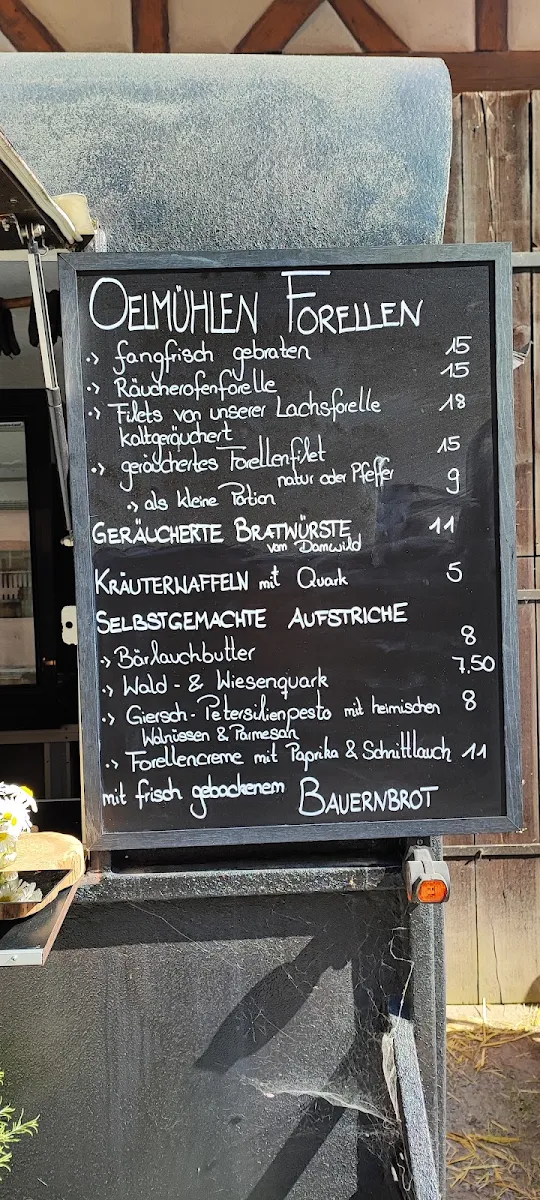 OELMÜHLEN FORELLEN
.> fangfrisch gebraten 15
.> Räucherofenforelle 15
.> Filets von unserer Lachsforelle 18
kaltgeräuchert
.> geräuchertes Forellenfilet 15
natur oder Pfeffer
.> als kleine Portion 9
GERÄUCHERTE BRATWÜRSTE 11
vom Damwild
KRÄUTERWAFFELN mit Quark 5
SELBSTGEMACHTE AUFSTRICHE
.> Bärlauchbutter 8
.> Wald- & Wiesenquark 7,50
.> Giersch-Petersilienpesto mit heimischen 8
Walnüssen & Parmesan
.> Forellencreme mit Paprika & Schnittlauch 11
mit frisch gebackenem BAUERNBROT